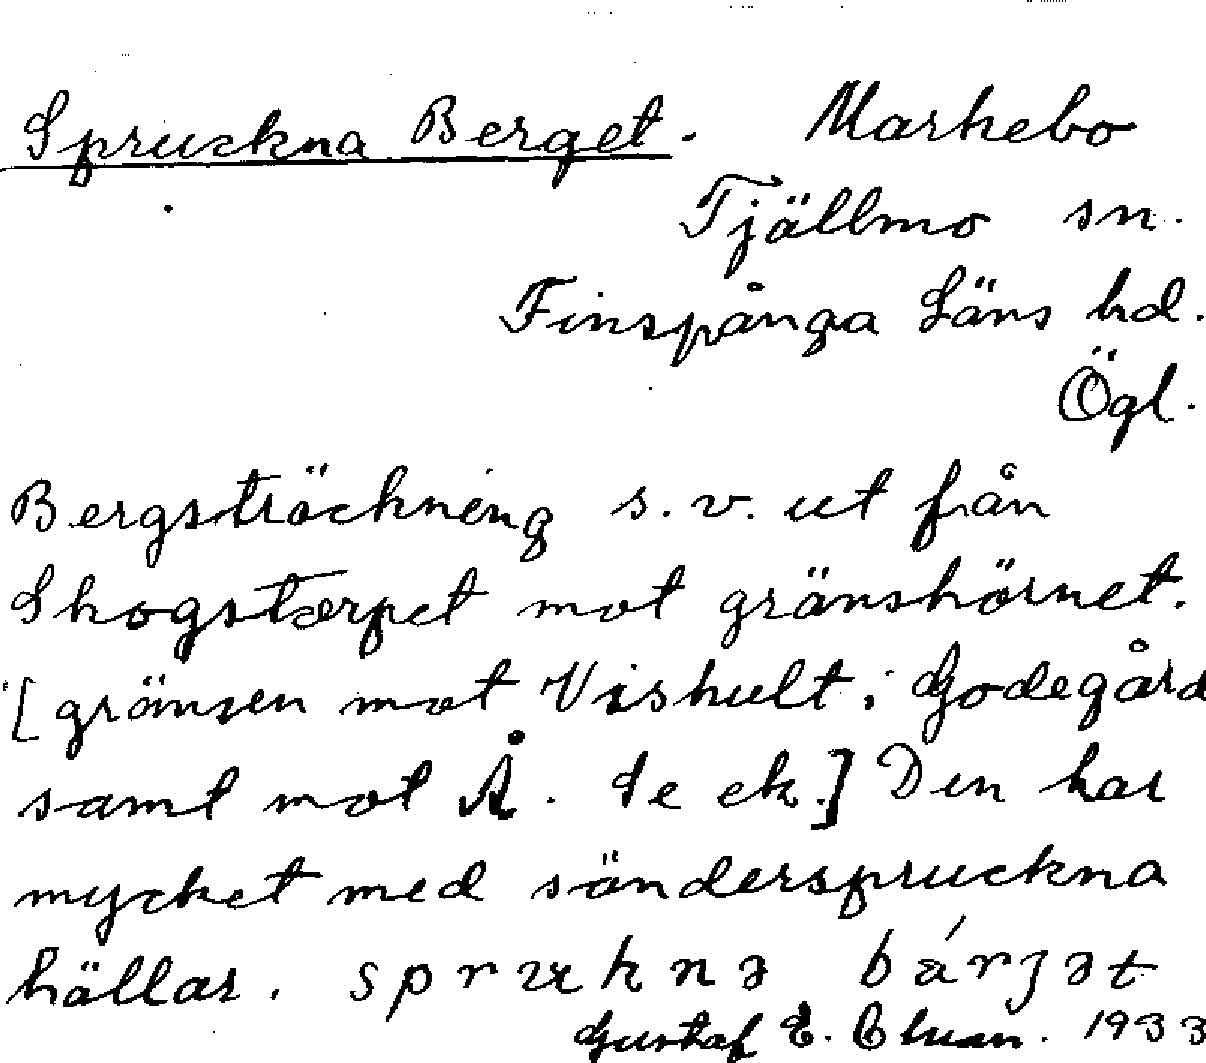 Spruckna Berget. Markebo
Tjällmo sn.
Finspånga Läns hd.
Ögl.
Bergsträckning s.v. ut från
Skogstorpet mot gränshörnet.
[gränsen mot Vishult i Godegård
samt mot Å.] Den har
mycket med sönderspruckna
hällar. spruknə bárjət
Gustaf E. 1933